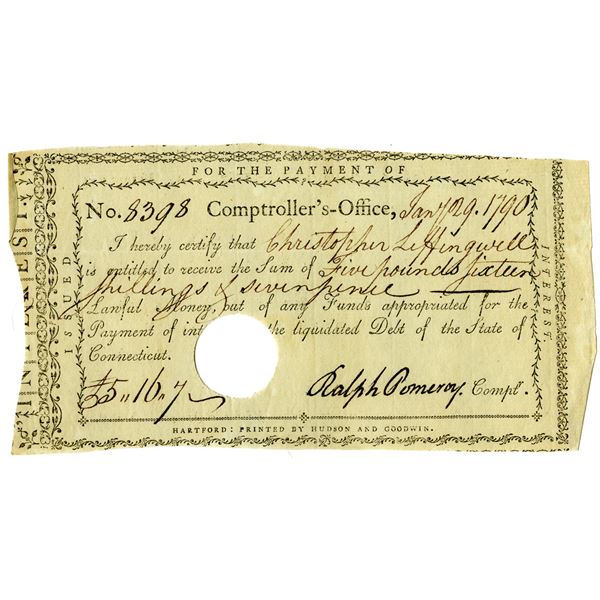 FOR THE PAYMENT OF
ISSUED
INTEREST
No. 8398 Comptroller's-Office, Jany 29. 1790
I hereby certify that Christopher Leffingwell
is entitled to receive the Sum of Five pounds sixteen
shillings & seven pence
Lawful Money, out of any Funds appropriated for the
Payment of int the liquidated Debt of the State of
Connecticut.
£5,, 16,, 7
Ralph Pomeroy. Compt'r.
HARTFORD: PRINTED BY HUDSON AND GOODWIN.